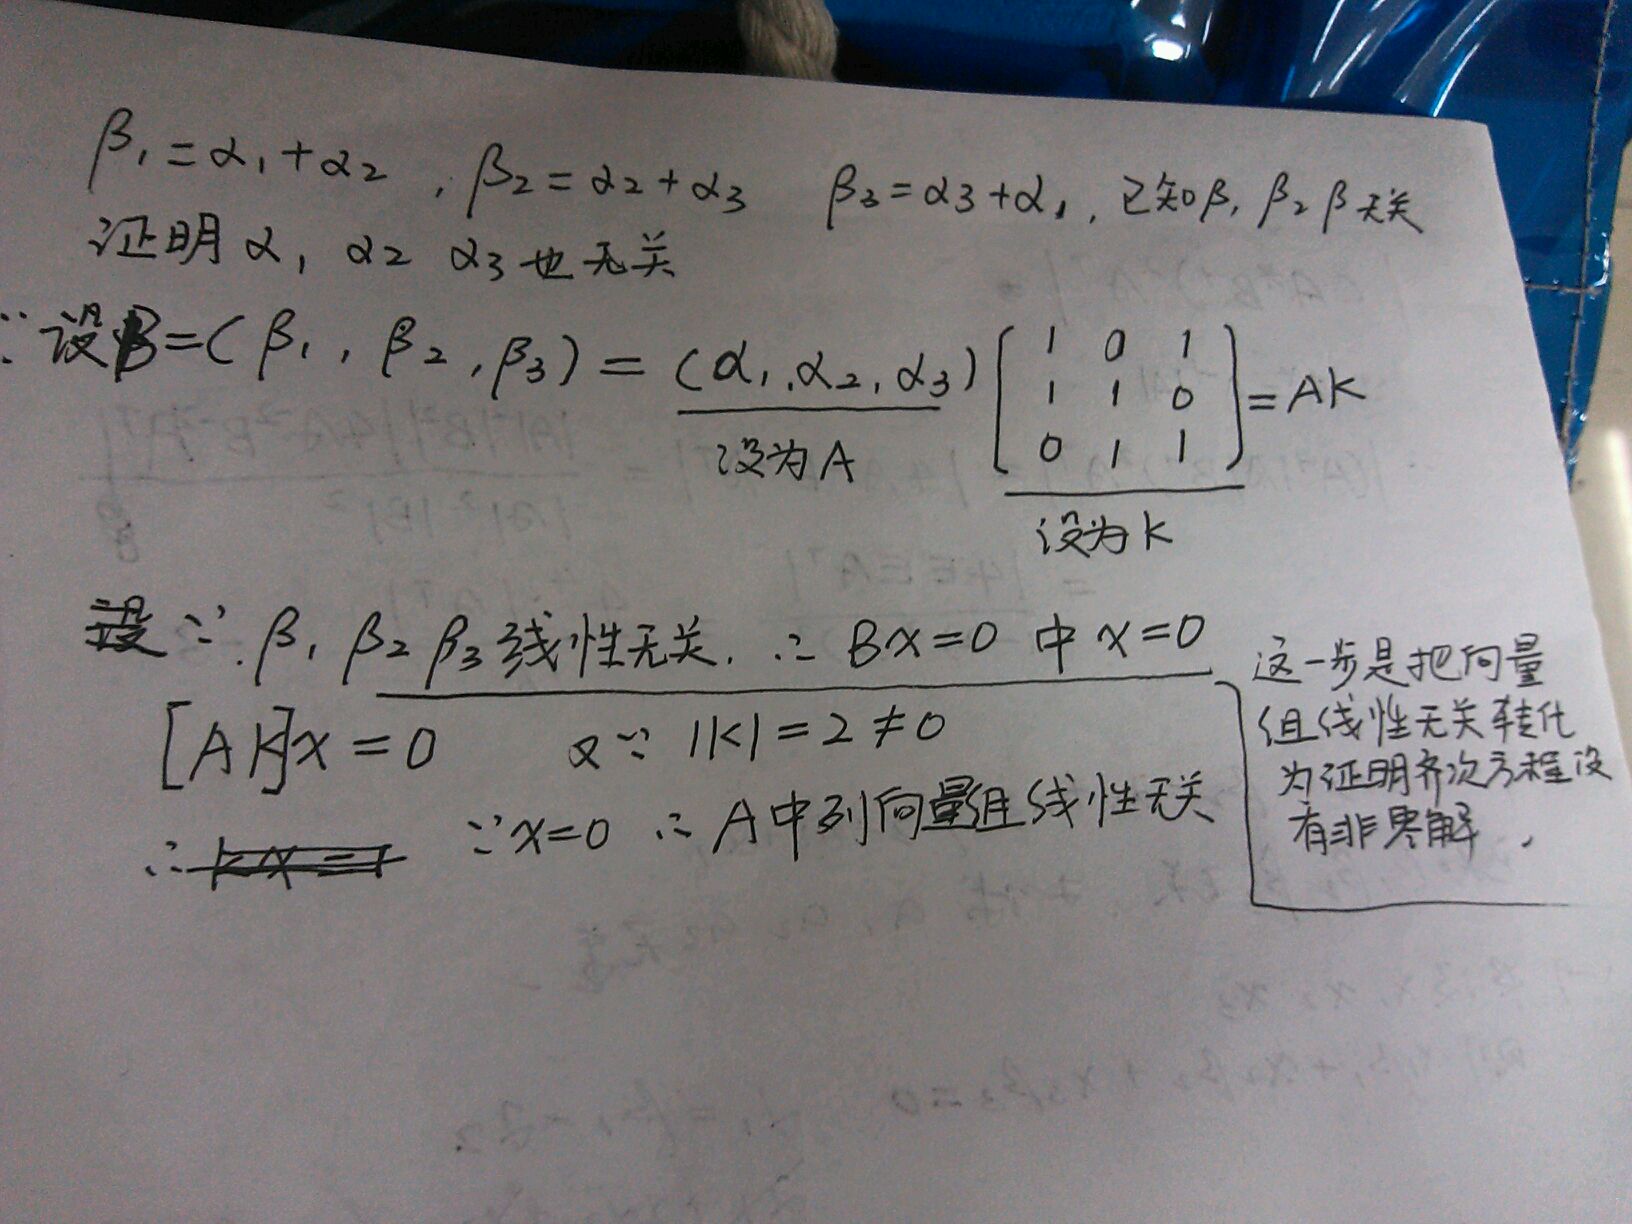 β₁=α₁+α₂ , β₂=α₂+α₃ β₃=α₃+α₁, 已知β₁ β₂ β无关
证明α₁ α₂ α₃也无关
∵设B=(β₁, β₂, β₃)=(α₁,α₂,α₃)[1 0 1
1 1 0
0 1 1]=AK
设为A
设为K
∵ β₁ β₂ β₃线性无关. ∴ Bx=0 中 x=0
[AK]x=0 又∵ |K|=2≠0
∴ ∵x=0 ∴ A中列向量组线性无关
这一步是把向量
组线性无关转化
为证明齐次方程没
有非零解.